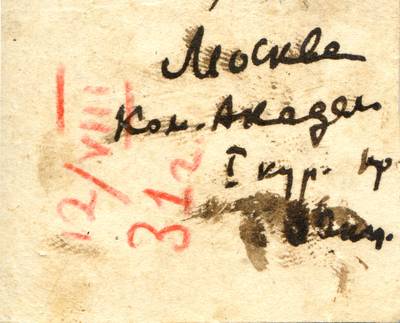 Москва
Ком. Академ.
I кур. пр.
12/VIII
31г.